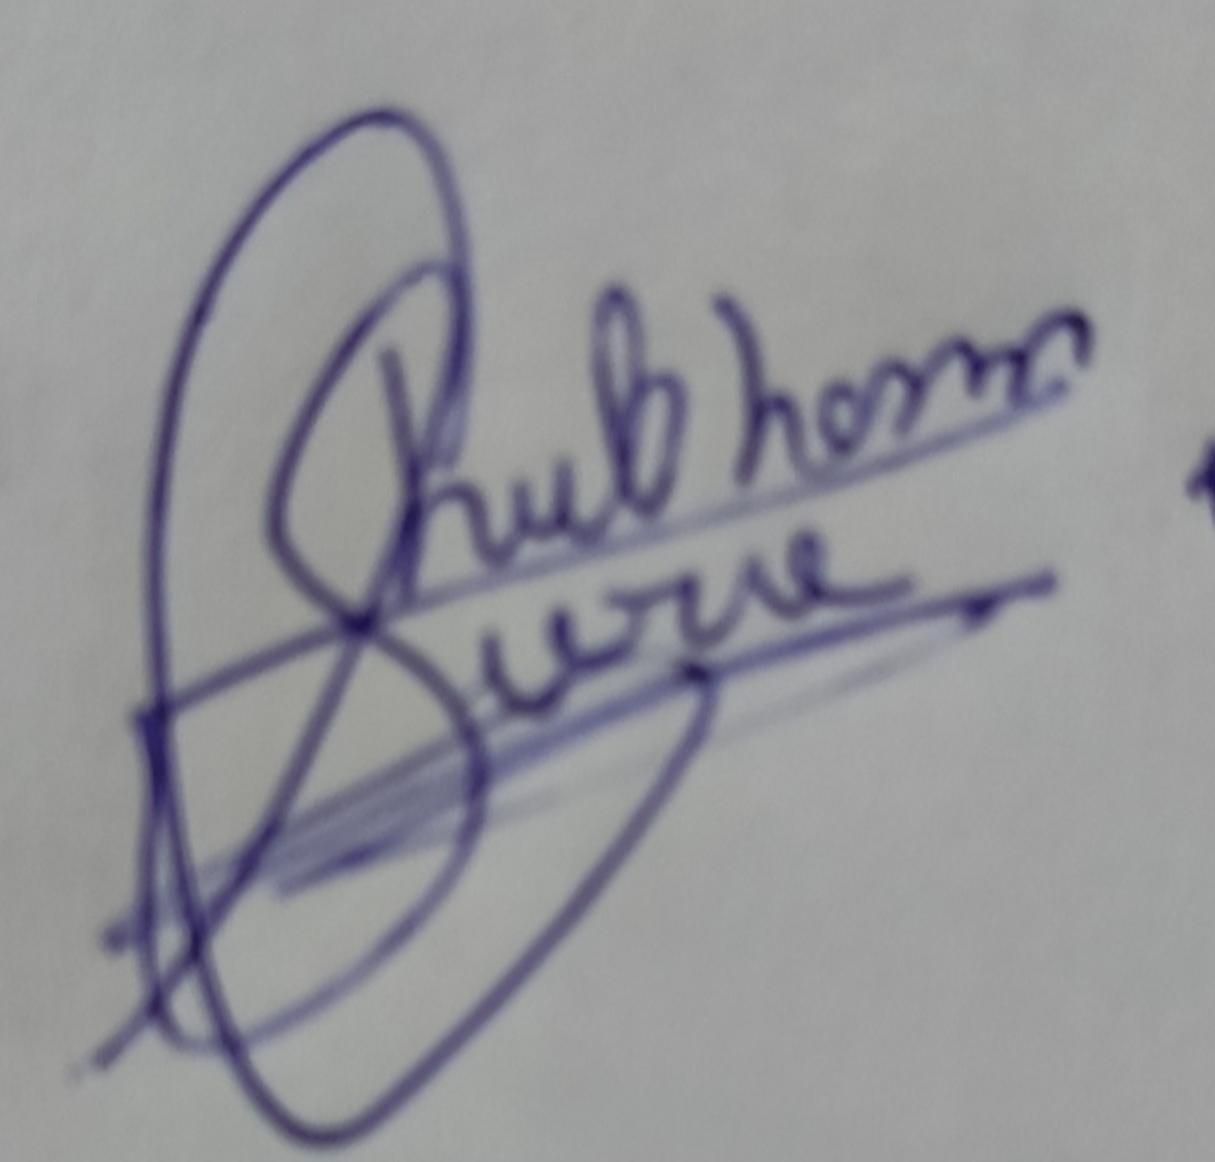 Shubham
Surve